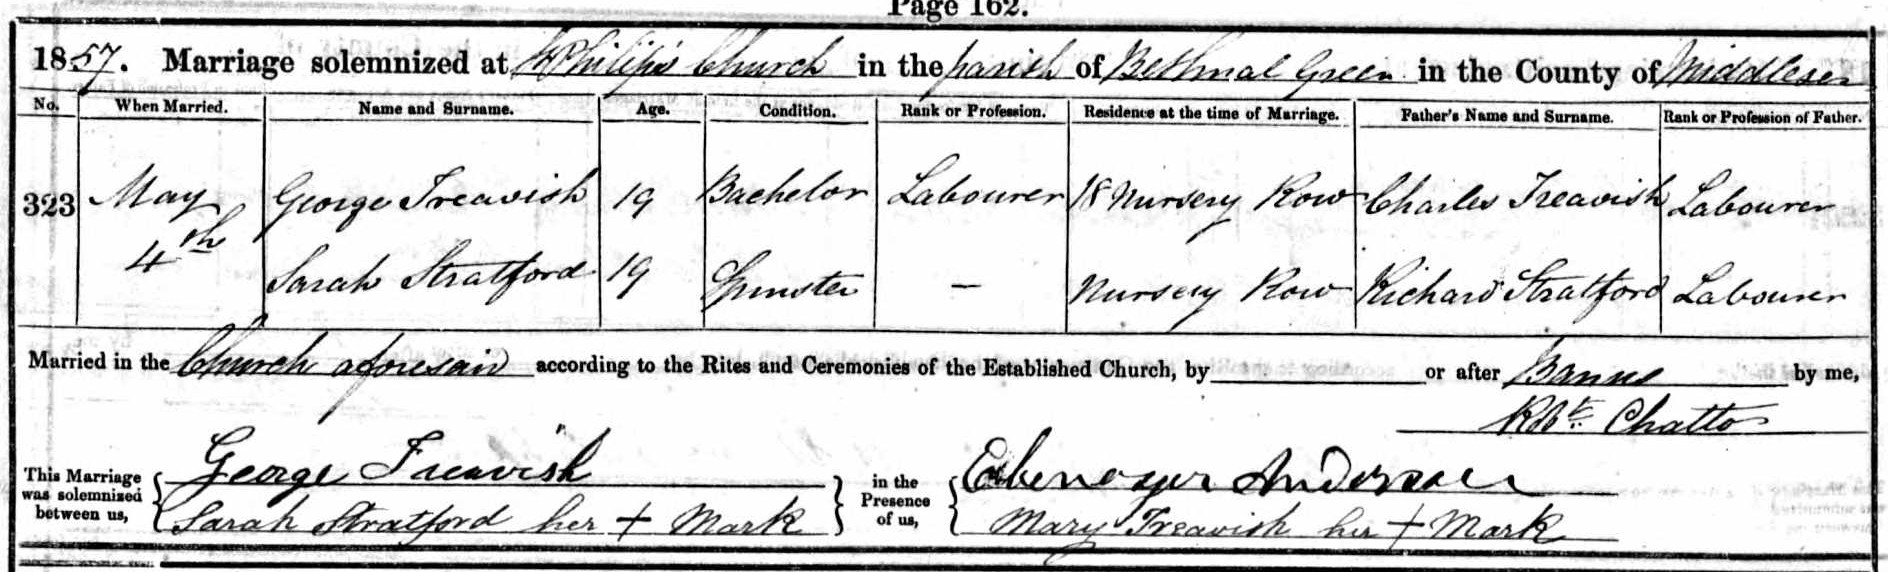 Page 162.
1857. Marriage solemnized at St Philip's Church in the parish of Bethnal Green in the County of Middlesex
No. When Married. Name and Surname. Age. Condition. Rank or Profession. Residence at the time of Marriage. Father's Name and Surname. Rank or Profession of Father.
323 May George Treavish 19 Bachelor Labourer 18 Nursery Row Charles Treavish Labourer
4th Sarah Stratford 19 Spinster — Nursery Row Richard Stratford Labourer
Married in the Church aforesaid according to the Rites and Ceremonies of the Established Church, by or after Banns by me,
Robt. Chatto
This Marriage was solemnized between us, { George Treavish } in the Presence of us, { Ebenezer Anderson
Sarah Stratford her + Mark Mary Treavish her + Mark